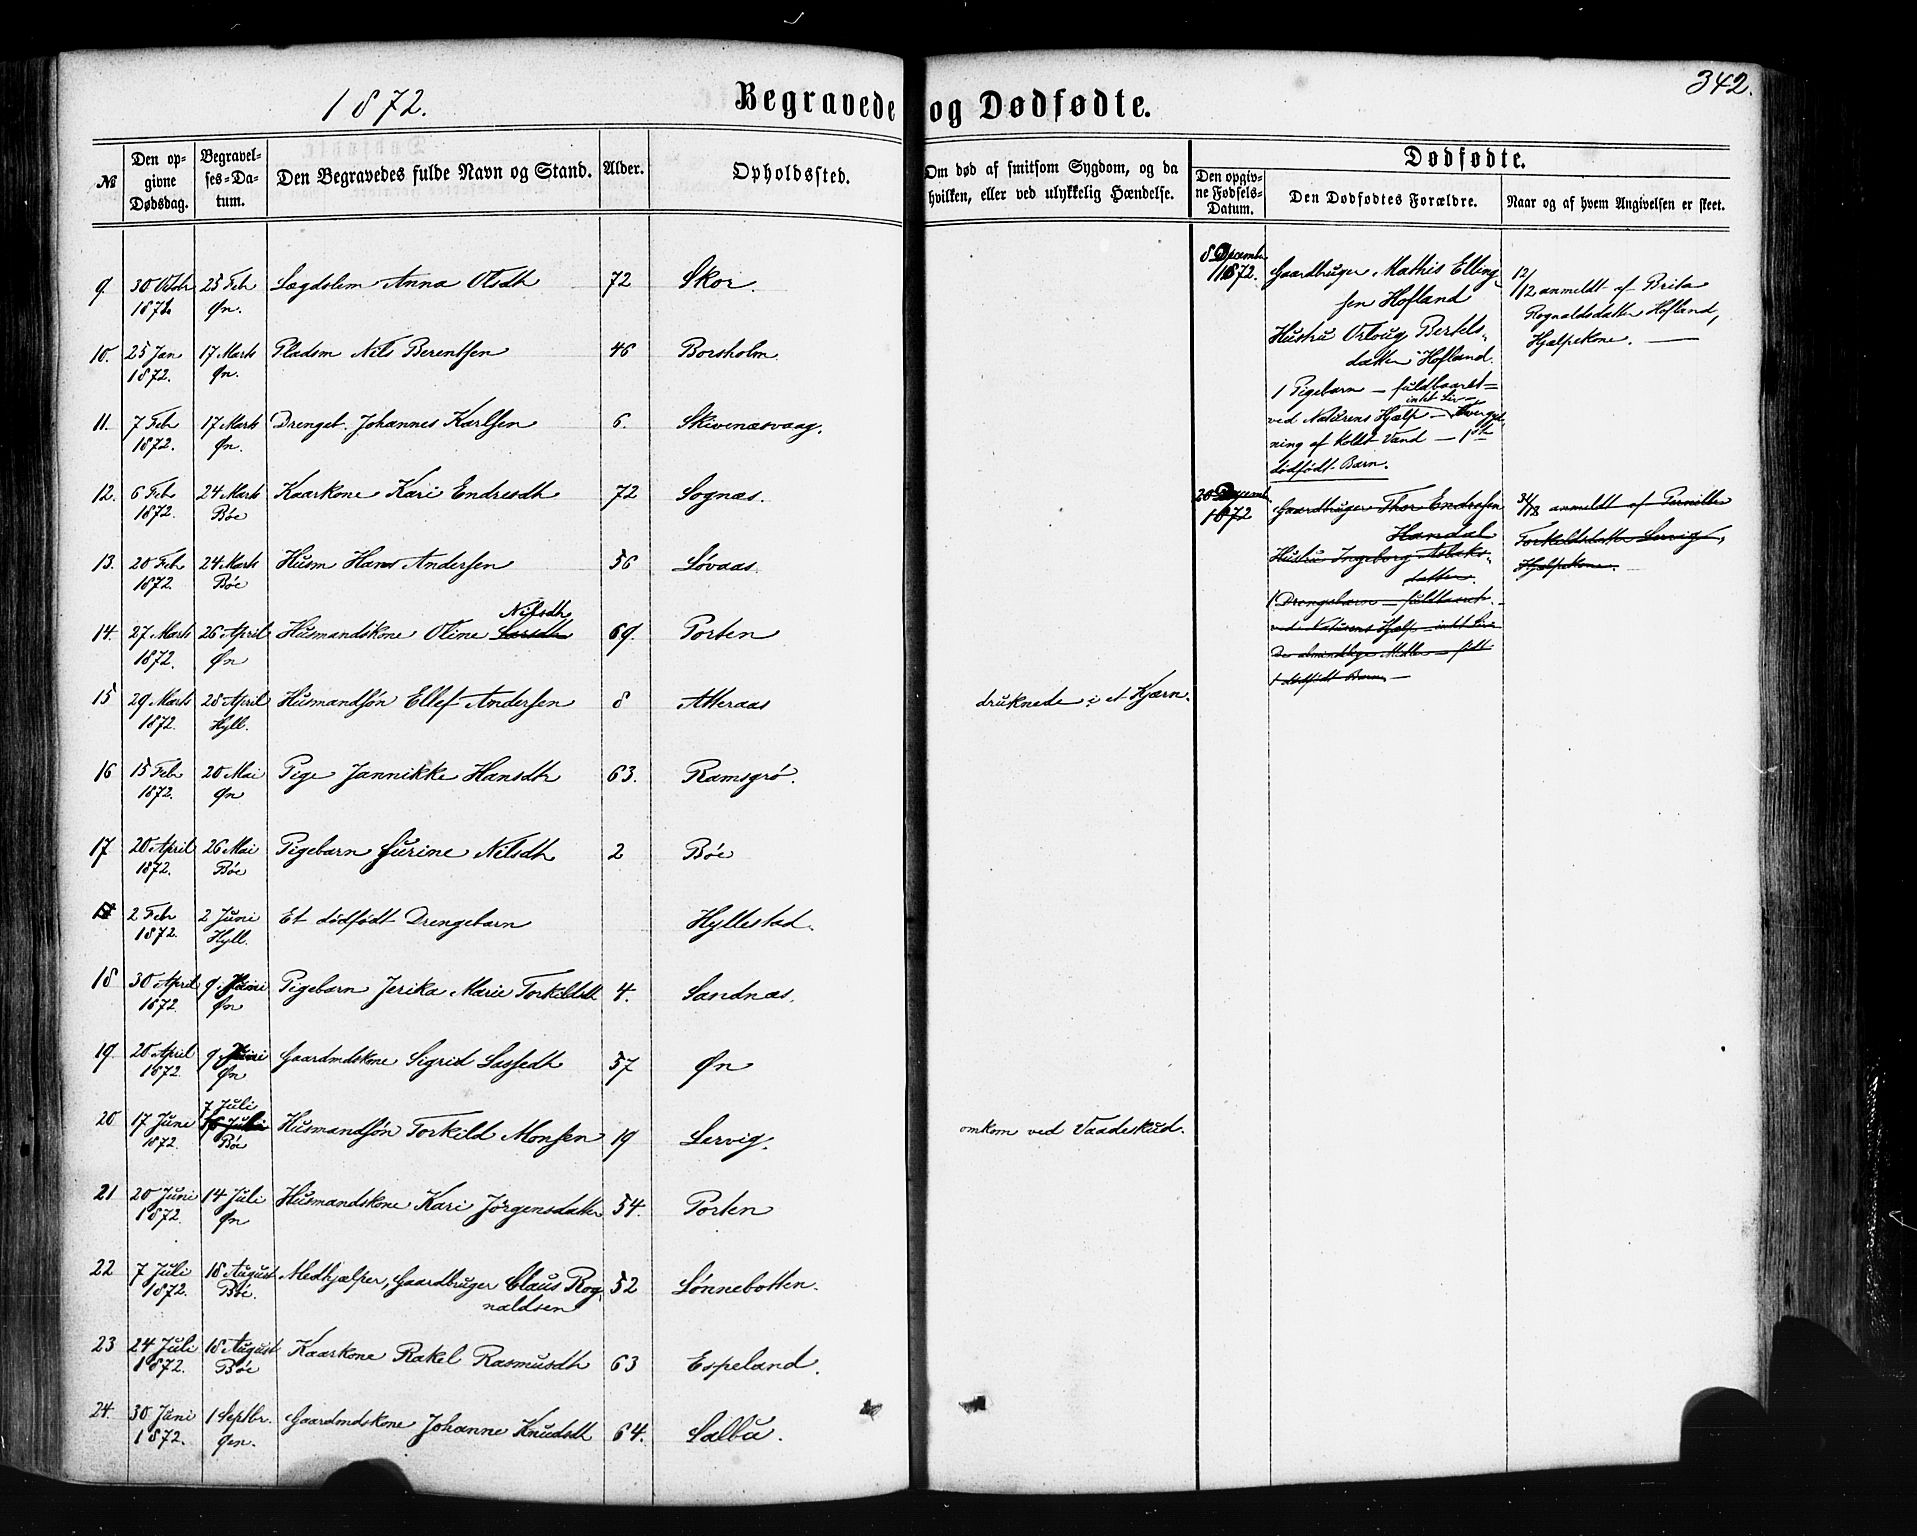 1872.
Begravede og Dødfødte.
342.
№
Den opgivne Dødsdag.
Begravelses-Datum.
Den Begravedes fulde Navn og Stand.
Alder.
Opholdssted.
Om død af smitsom Sygdom, og da hvilken, eller ved ulykkelig Hændelse.
Dødfødte.
Den opgivne Fødsels-Datum.
Den Dødfødtes Forældre.
Naar og af hvem Angivelsen er skeet.
9. 30 1872 25 Feb Øn. Lægdslem Anna Olsdtr 72 Skor.
10. 25 Jan 1872. 17 Marts Øn. Pladsm Nils Berentsen 46 Borsholm
11. 7 Feb 1872. 17 Marts Øn. Drengeb. Johannes Karlsen 6. Skivenæsvaag.
12. 6 Feb 1872. 24 Marts Bøe Kaarkone Kari Endresdtr 72 Sognæs.
13. 20 Feb 1872. 24 Marts Bøe Husm Hans Andersen 56 Løvaas
14. 27 Marts 1872. 26 April Øn Husmandskone Oline Larsdtr Nilsdtr 69. Porten
15 29 Marts 1872. 28 April Hyll. Husmandsøn Ellef Andersen 8 Atteraas druknede i et Kjærn.
16 15 Feb 1872. 20 Mai Øn Pige Jannikke Hansdtr 63. Ramsgrø.
17 20 April 1872. 26 Mai Bøe Pigebarn Gurine Nilsdtr 2 Bøe
2 Feb 1872. 2 Juni Hyll. Et dødfødt Drengebarn Hyllestad.
18 30 April 1872 9 Juni Øn Pigebarn Jerika Marie Torkildsdtr 4. Sandnæs.
19. 20 April 1872 9 Juni Øn Gaardmdskone Sigrid Lassedtr 57 Øn
20 17 Juni 1872. 7 Juli Bøe Husmandsøn Torkild Monsen 19 Lervig. omkom ved Vaadeskud.
21 20 Juni 1872. 14 Juli Øn Husmandskone Kari Jörgensdatter 54. Porten
22 7 Juli 1872. 18 August Bøe. Medhjælper, Gaardbruger Claus Rognaldsen 52 Lønnebotten.
23 24 Juli 1872. 18 August Bøe Kaarkone Rakel Rasmusdtr 63 Espeland.
24. 30 Juni 1872. 1 Septbr. Øen. Gaardmdskone Johanne Knudsdtr 64. Salbu.
8 Decembr 1872.
Gaardbruger Mathis Elling
sen Hofland
Hustru Orloug Bertels-
datter Hofland.
1 Pigebarn – fuldbaaret –
intet Liv –
ved Naturens Hjælp –
ning af koldt Vand – 1ste
dødfødt Barn.
12/12 anmeldt af Brita
Rognaldsdatter Hofland,
Hjælpekone. –
20 Decemb. 1872
Gaardbruger Thor Endresen
Handal
Hustru Ingeborg
datter.
1 Drengebarn – fuldbaaret –
ved Naturens Hjælp – intet Liv
De almindelige Midler – født
1 dødfødt Barn –
anmeldt af Pernille
Torkildsdatter Lervig,
Hjælpekone.